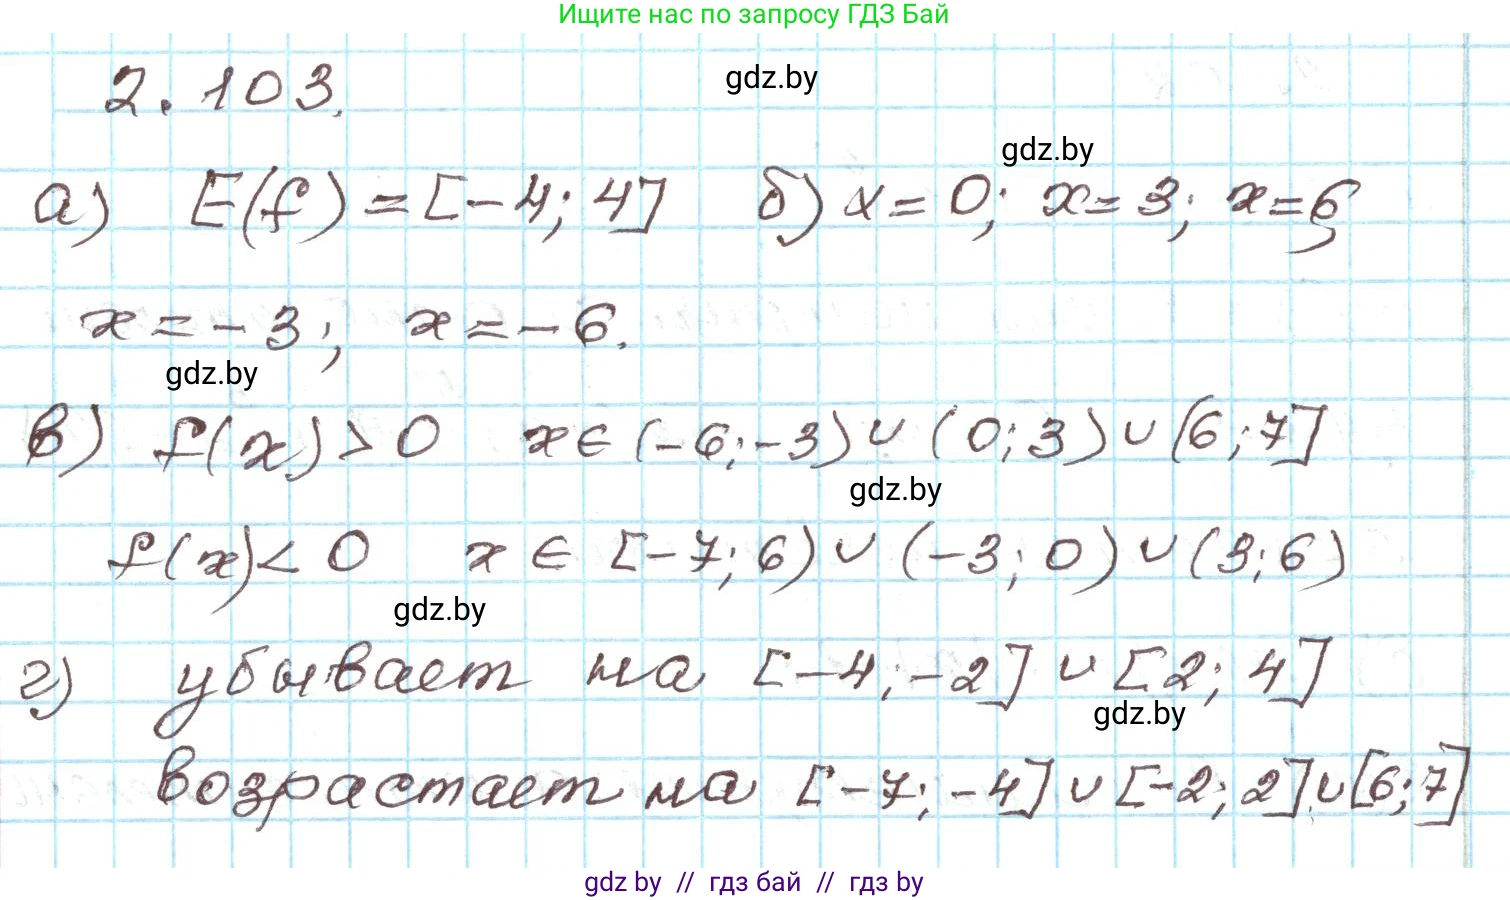 Ищите нас по запросу ГДЗ Бай
2.103.
gdz.by
gdz.by
а) E(f) = [-4; 4] б) x = 0; x = 3; x = 6,
x = -3; x = -6.
gdz.by
в) f(x) > 0 x ∈ (-6; -3) ∪ (0; 3) ∪ (6; 7]
gdz.by
f(x) < 0 x ∈ [-7; 6) ∪ (-3; 0) ∪ (3; 6)
gdz.by
г) убывает на [-4; -2] ∪ [2; 4]
gdz.by
возрастает на [-7; -4] ∪ [-2; 2] ∪ [6; 7]
gdz by // гдз бай // гдз by